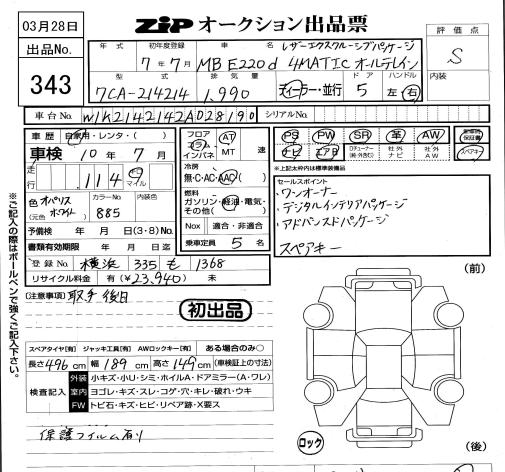 03月28日
ZIP オークション出品票
評価点
S
出品No.
343
年式 初年度登録 車名 レザーエクスクルーシブパッケージ
7年7月 MB E220d 4MATIC オールテレイン
型式 排気量 ドア ハンドル 内装
7CA-214214 1,990 ディーラー・並行 5 左 右
車台No. W1K2142142A028190 シリアルNo.
車歴 自家用・レンタ・( )
車検 10年7月
走行 .114 マイル
色 オパリスホワイト カラーNo. 885 内装色
(元色 )
予備検 年 月 日(3・8)No.
書類有効期限 年 月 日迄
登録No. 横浜 335 も 1368
リサイクル料金 有(¥23,940) 未
フロア コラム インパネ AT MT 速
冷房 無・C・AC・AAC
燃料 ガソリン・軽油・電気・その他( )
Nox 適合・非適合
乗車定員 5 名
PS PW SR 革 AW
ナビ エアB 社外ナビ 社外AW スペアキー
※上記太枠内は標準装備品
セールスポイント
・ワンオーナー
・デジタルインテリアパッケージ
・アドバンスドパッケージ
スペアキー
[注意事項] 取手後日
初出品
スペアタイヤ[有] ジャッキ工具[有] AWロックキー[有] ある場合のみ○
長さ 496 cm 幅 189 cm 高さ 149 cm (車検証上の寸法)
検査記入
外装 小キズ・小U・シミ・ホイルA・ドアミラー(A・ワレ)
室内 ヨゴレ・キズ・スレ・コゲ・穴・キレ・破れ・ウキ
FW トビ石・キズ・ヒビ・リペア跡・X要ス
保護フィルム有り
(前)
ロック
(後)
※ご記入の際はボールペンで強くご記入下さい。